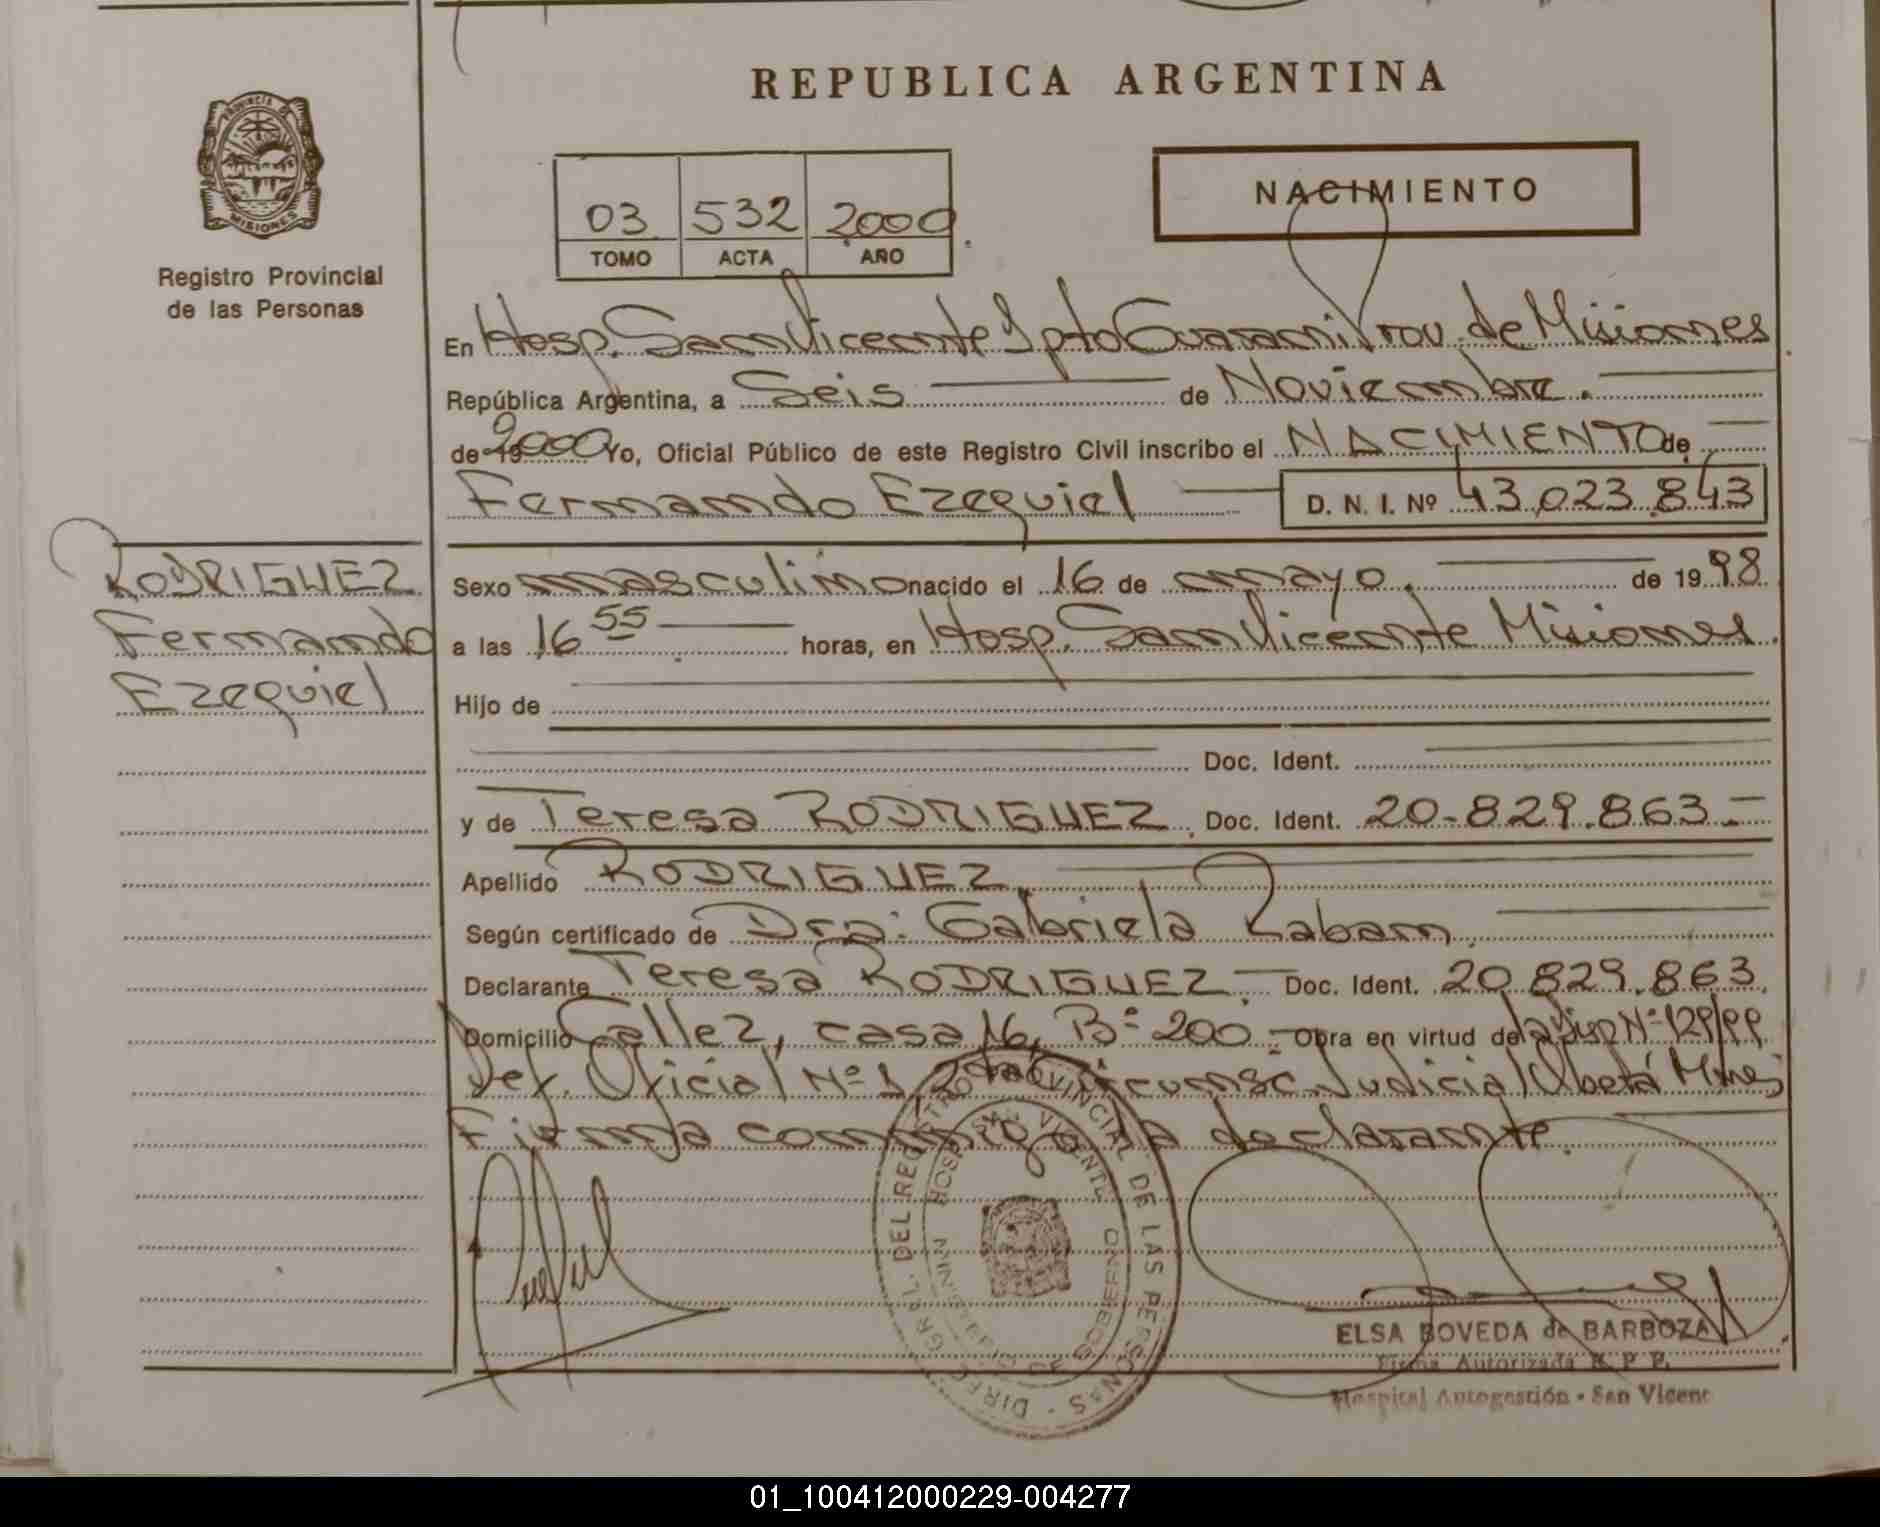 REPUBLICA ARGENTINA
PROVINCIA DE
MISIONES
Registro Provincial
de las Personas
03 532 2000
TOMO ACTA AÑO
NACIMIENTO
En Hosp. San Vicente Dpto Guarani Prov. de Misiones
República Argentina, a Seis de Noviembre.
de 19 2000 Yo, Oficial Público de este Registro Civil inscribo el NACIMIENTO de
Fernando Ezequiel D. N. I. Nº 43.023.843
RODRIGUEZ
Fernando
Ezequiel
Sexo masculino nacido el 16 de mayo. de 1998
a las 16 55 horas, en Hosp. San Vicente Misiones.
Hijo de
Doc. Ident.
y de Teresa RODRIGUEZ. Doc. Ident. 20-829.863.-
Apellido RODRIGUEZ.
Según certificado de Dra: Gabriela Laban.
Declarante Teresa RODRIGUEZ. Doc. Ident. 20.829.863.
Domicilio Calle 2, casa 16, Bº 200.- Obra en virtud de la Disp Nº 129/99
Def. Oficial Nº 1, 2da Circunsc. Judicial Oberá Mnes
Firma conmigo la declarante.
DIREC. GRAL. DEL REGISTRO PROVINCIAL DE LAS PERSONAS
HOSP. SAN VICENTE
MINISTERIO DE GOBIERNO
ELSA BOVEDA de BARBOZA
Firma Autorizada R. P. P.
Hospital Autogestión - San Vicent
01_100412000229-004277